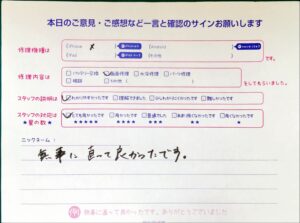 本日のご意見・ご感想など一言と確認のサインお願いします
修理機種は
iPhone
iPad
その他
です。
修理内容は
バッテリー交換 画面修理 水没修理 パーツ修理
相談 その他
をしてもらいました。
スタッフの説明は
わかりやすかったです 理解できました 少しわかりにくかったです 難しかったです
スタッフの対応は
とても良かったです 良かったです 普通でした あまり良くなかったです 良くなかったです
★星の数★
★★★★★ ★★★★ ★★★ ★★ ★
ニックネーム:
無事に直って良かったです。
無事に直って良かったです。ありがとうございました